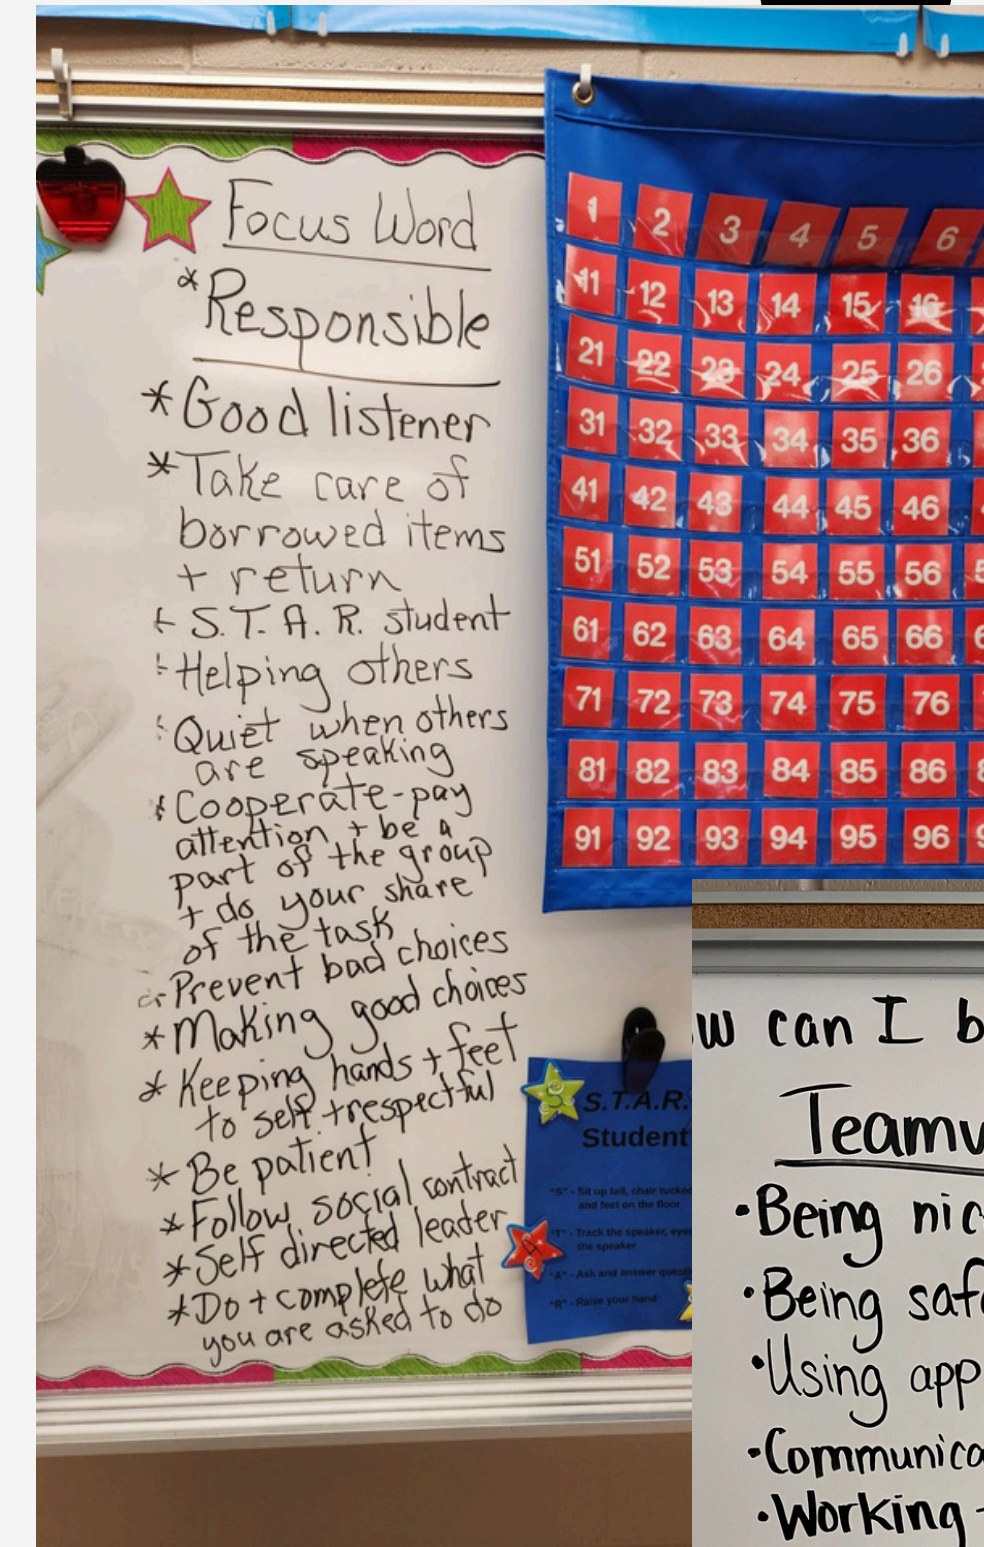 Focus Word
* Responsible
* Good listener
* Take care of
borrowed items
+ return
S.T.A.R. student
Helping others
Quiet when others
are speaking
Cooperate-pay
attention + be a
part of the group
+ do your share
of the task
Prevent bad choices
* Making good choices
* Keeping hands + feet
to self + respectful
* Be patient
* Follow social contract
* Self directed leader
* Do + complete what
you are asked to do
1 2 3 4 5 6
11 12 13 14 15 16
21 22 23 24 25 26
31 32 33 34 35 36
41 42 43 44 45 46
51 52 53 54 55 56
61 62 63 64 65 66
71 72 73 74 75 76
81 82 83 84 85 86
91 92 93 94 95 96
S.T.A.R.
Student
"S" - Sit up tall, chair tucked
and feet on the floor
"T" - Track the speaker,
the speaker
"A" - Ask and answer
"R" - Raise your hand
w can I b
Teamw
• Being nic
• Being saf
• Using app
• Communica
• Working